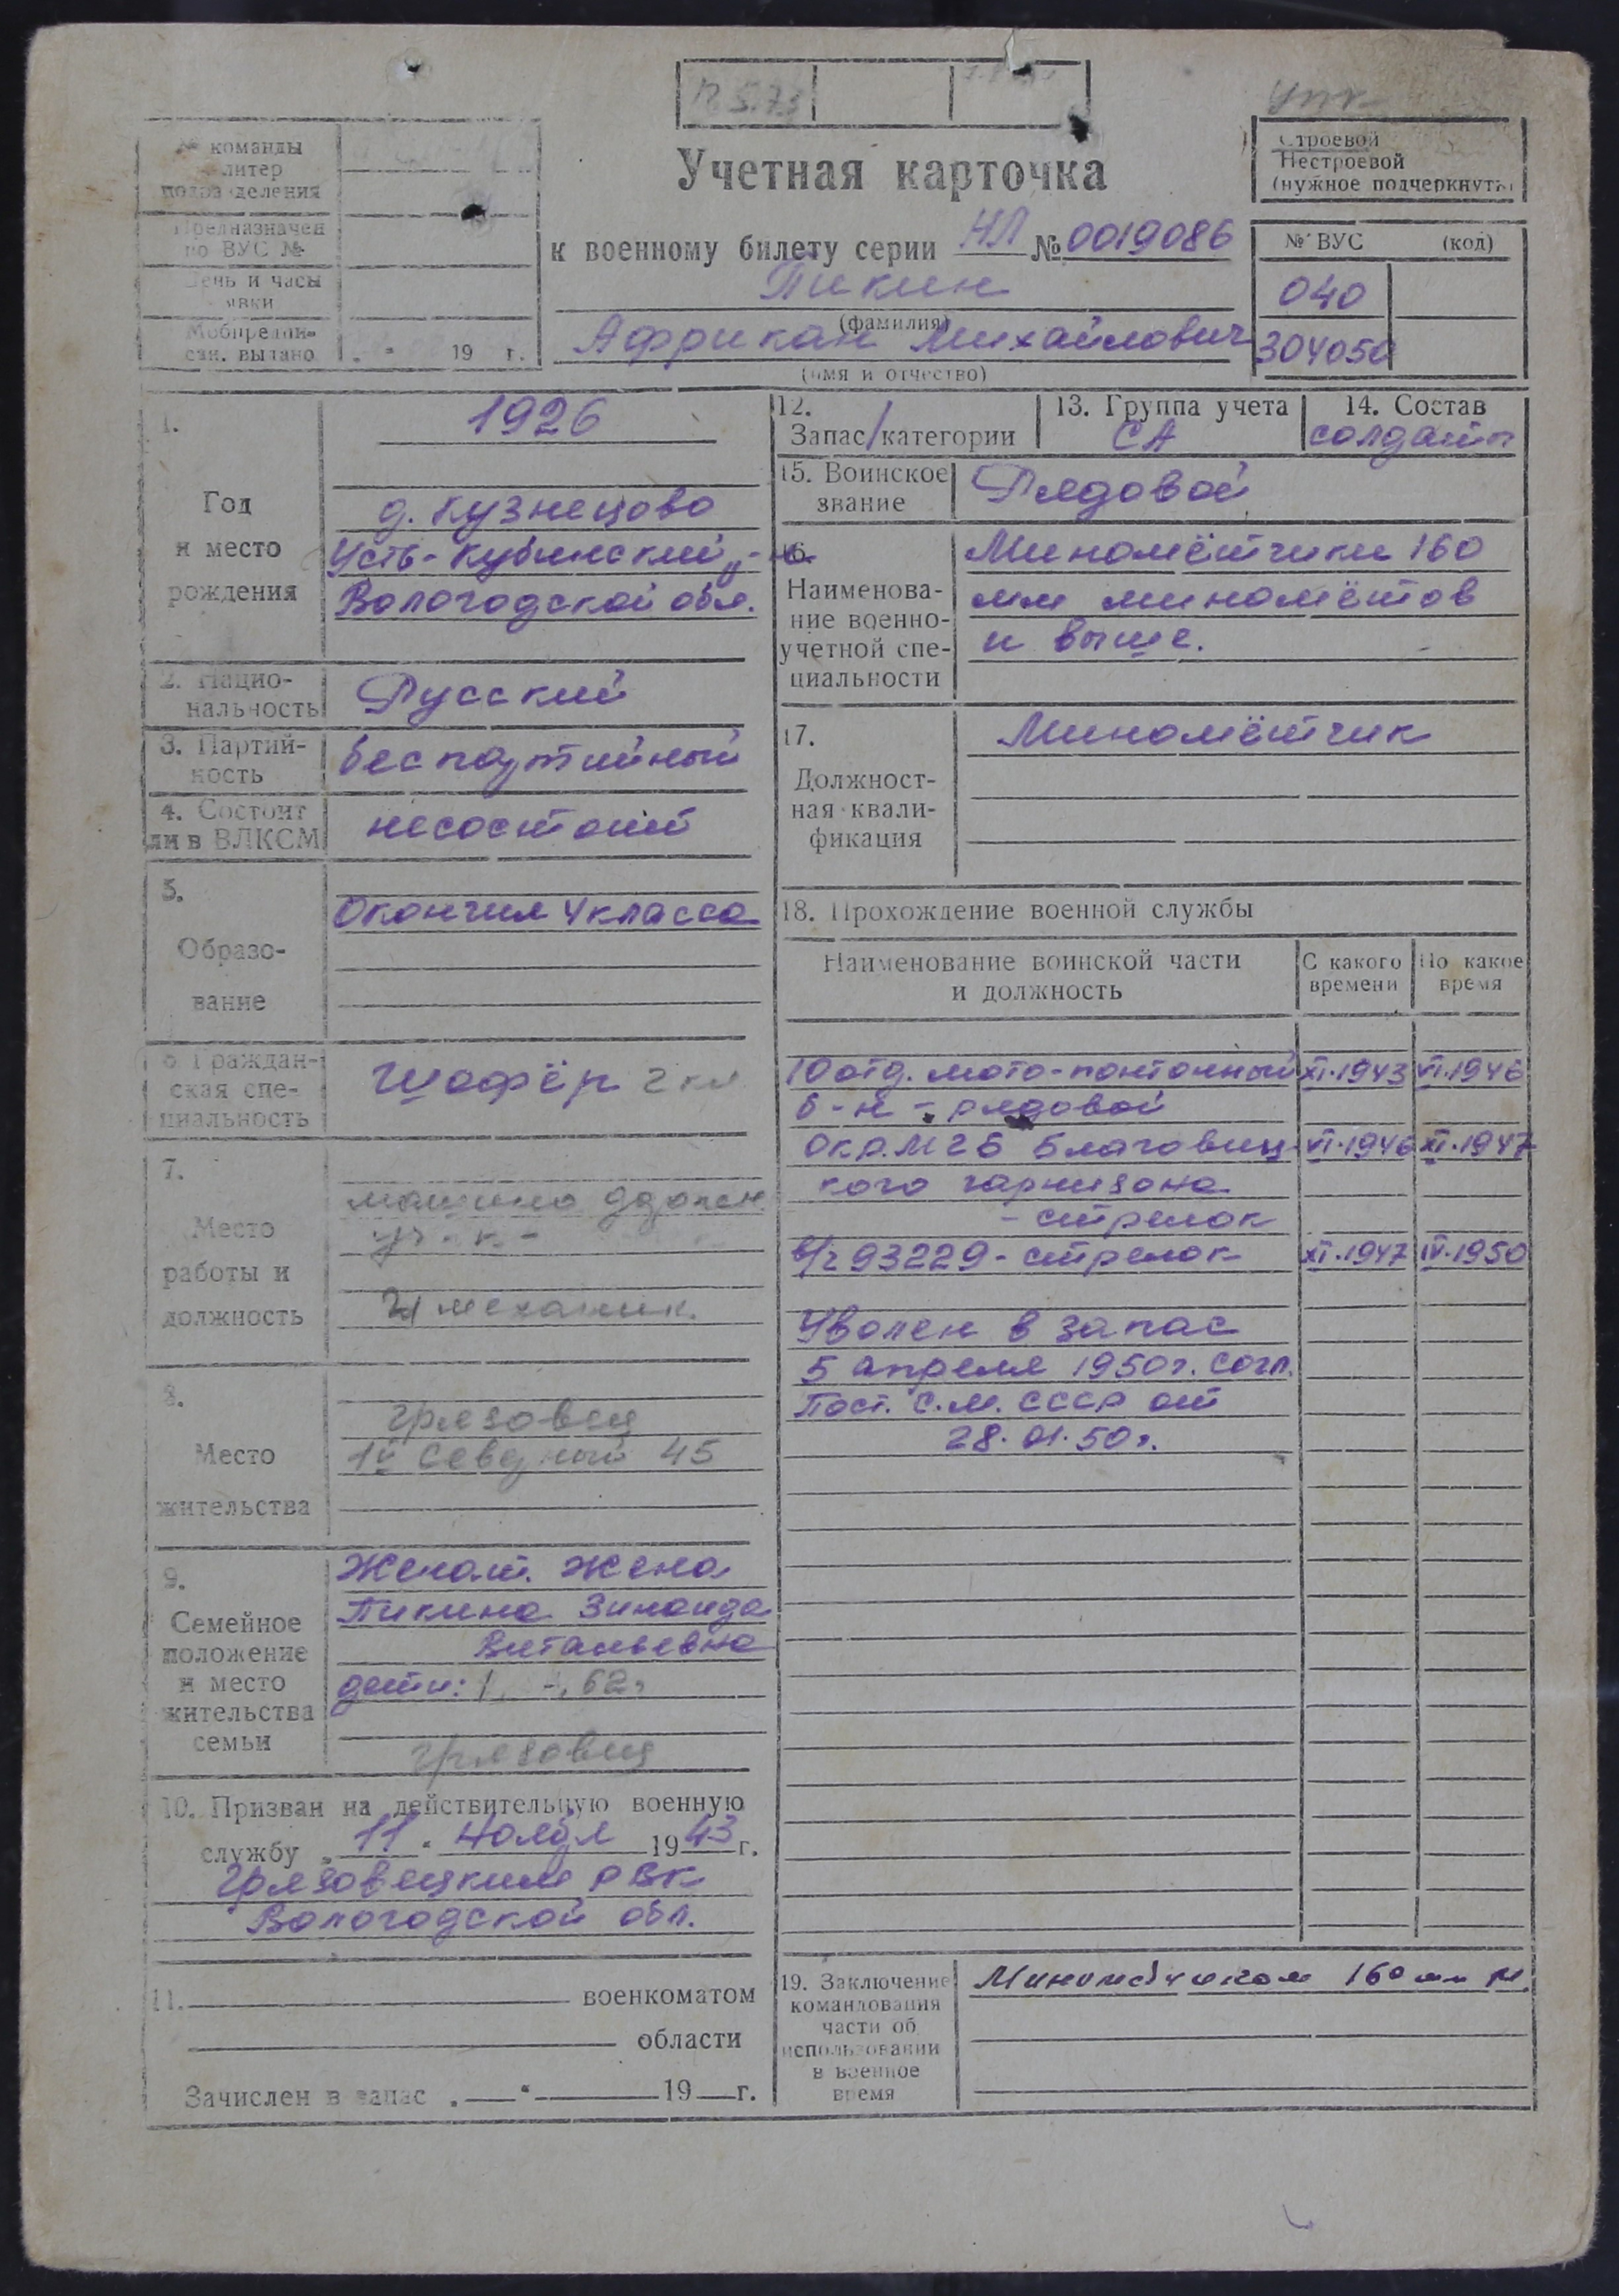 12.5.73
Учетная карточка
к военному билету серии НЛ № 0019086
Пикин
(фамилия)
Африкан Михайлович
(имя и отчество)
№ команды
литер
подразделения
Предназначен
по ВУС №
День и часы
явки
Мобпредпи-
сан. выдано „ “ 19 г.
Строевой
Нестроевой
(нужное подчеркнуть)
№ ВУС (код)
040
304050
1.
Год
и место
рождения
1926
д. Кузнецово
Усть-Кубинский
Вологодской обл.
2. Нацио-
нальность
Русский
3. Партий-
ность
беспартийный
4. Состоит
ли в ВЛКСМ
несостоит
5.
Образо-
вание
Окончил 4 класса
6. Граждан-
ская спе-
циальность
Шофёр 2 кл
7.
Место
работы и
должность
механик.
8.
Место
жительства
Грязовец
45
9.
Семейное
положение
и место
жительства
семьи
Женат. Жена
Пикина Зинаида
Витальевна
дети: 1 62г
Грязовец
10. Призван на действительную военную
службу „ 11 “ Ноября 1943 г.
Грязовецким РВК
Вологодской обл.
11. военкоматом
области
Зачислен в запас „ — “ — 19 — г.
12.
Запас/категории
13. Группа учета
СА
14. Состав
солдаты
15. Воинское
звание
Рядовой
16.
Наименова-
ние военно-
учетной спе-
циальности
Миномётчики 160
мм миномётов
и выше.
17.
Должност-
ная квали-
фикация
Миномётчик
18. Прохождение военной службы
Наименование воинской части
и должность
С какого
времени
По какое
время
10 отд. мото-понтонный XI.1943 VI.1946
б-н - рядовой
Окр. МГБ Благовещ- VI.1946 XI.1947
кого гарнизона
- стрелок
в/ч 93229 - стрелок XI.1947 IV.1950
Уволен в запас
5 апреля 1950г. согл.
Пост. С.М. СССР от
28.01.50г.
19. Заключение
командования
части об
использовании
в военное
время
160 мм М